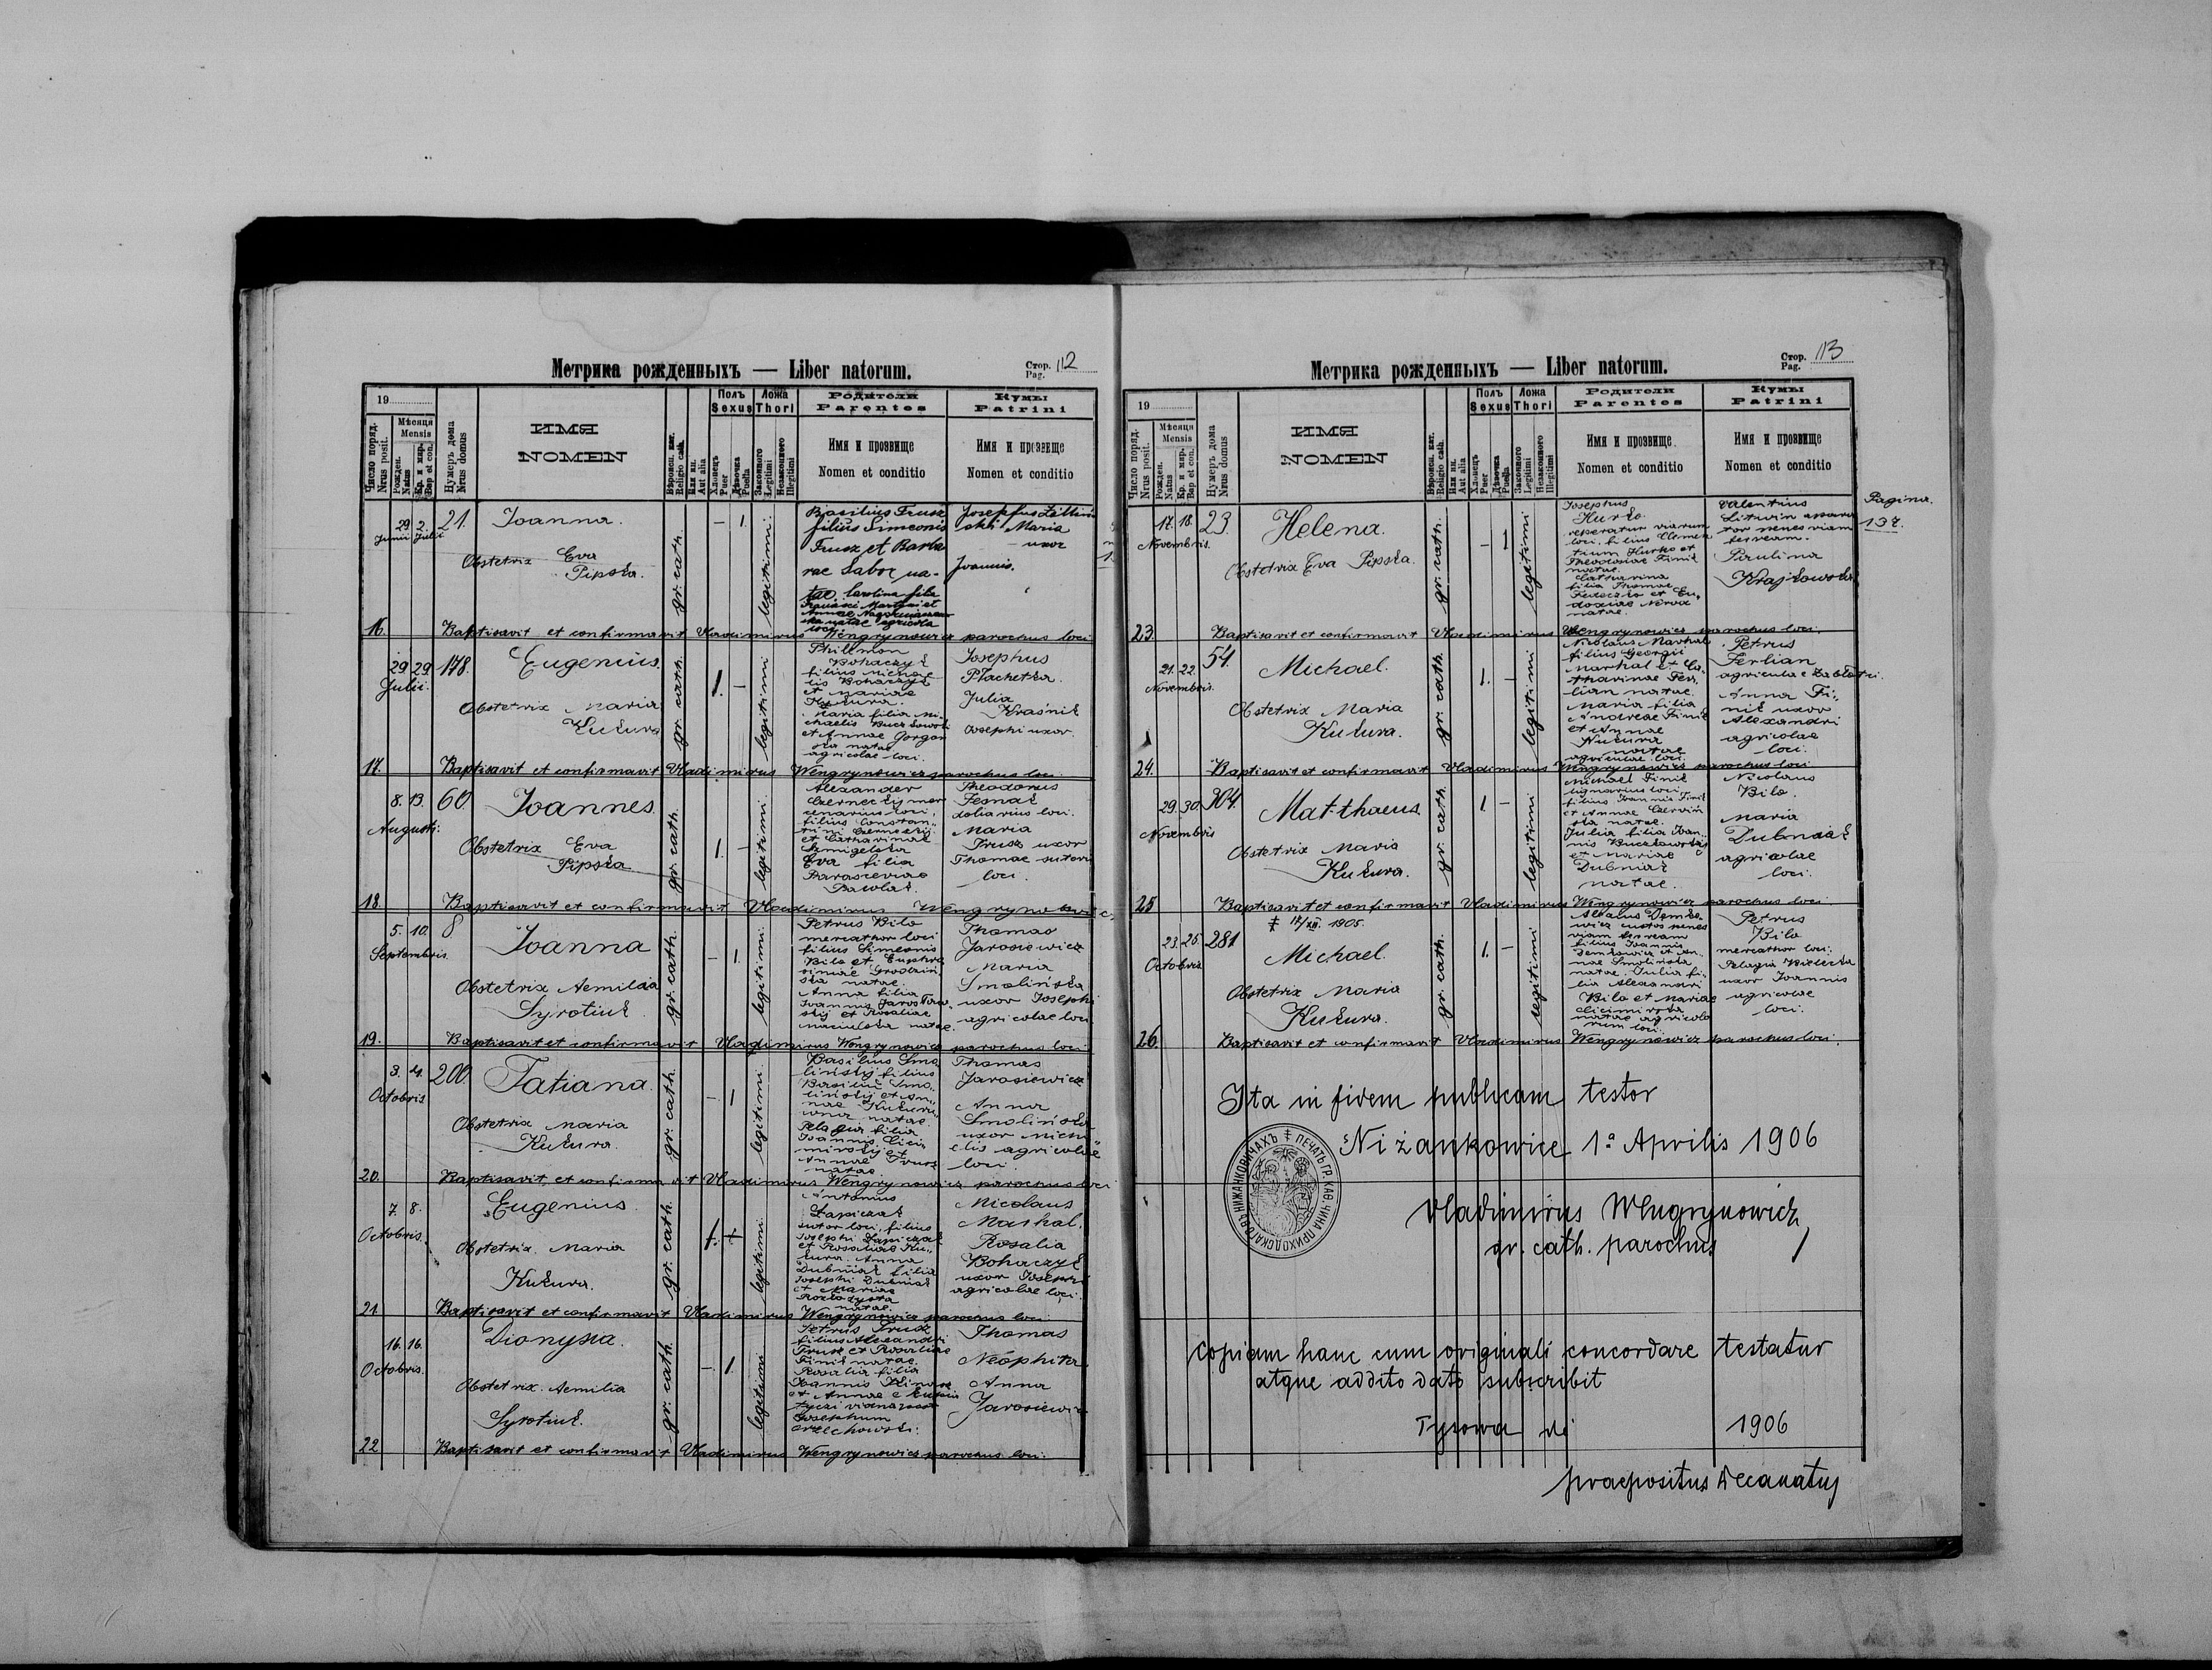 Метрика рожденныхъ — Liber natorum.
Стор. Pag. 112
19
Число поряд. Nrus posit.
Мѣсяця Mensis
Рожден. Natus
Кр. и мир. Bap et con.
Нумеръ дома Nrus domus
ИМЯ
NOMEN
Вѣроисп. кат. Religio cath.
Или ин. Aut alia
Полъ Sexus
Хлопець Puer
Дѣвочка Puella
Ложа Thori
Законного Legitimi
Незаконного Illegitimi
Родители Parentes
Имя и прозвище
Nomen et conditio
Кумы Patrini
Имя и прозвище
Nomen et conditio
29 Junii 2. Julii 21. Joanna. gr. cath. – 1. legitimi.
Obstetrix Eva Pipska.
Basilius Trusz
filius Simeonis
Trusz et Barba
rae Saboe na-
tae. Carolina filia
Josephus
Maria
uxor
Joannis.
16. Baptisavit et confirmavit Vladimirus Wengrynowicz parochus loci
29. 29. Julii. 178. Eugenius. gr. cath. 1. – legitimi
Obstetrix Maria Kukura
Philemon
Bohaczyk
filius Michae-
lis Bohaczyk
et Mariae
Kukura.
Maria filia Mi-
chaelis
et Annae Gorgon
ska natae
agricolae loci.
Josephus
Plachetka.
Julia
Kraśnik
Josephi uxor
17. Baptisavit et confirmavit Vladimirus Wengrynowicz parochus loci
8. 13. Augusti. 60. Joannes. gr. cath. 1. – legitimi.
Obstetrix Eva Pipska
Alexander
filius Constan-
tini
et Catharinae
Smigelska
Eva filia
Parasceviae
Theodorus
doliarius loci.
Maria
Trusz uxor
Thomae sutoris
loci.
18. Baptisavit et confirmavit Vladimirus Wengrynowicz
5. 10. Septembris. 8 Joanna gr. cath. – 1. legitimi.
Obstetrix Aemilia Syrotiuk
Petrus Bilo
mercathor loci
filius Simeonis
Bilo et Euphro
siniae
ska natae.
Anna filia
Joannis
et Rosaliae
natae.
Thomas
Jarosiewicz
Maria
Smolińska
uxor Josephi
agricolae loci
19. Baptisavit et confirmavit Vladimirus Wengrynowicz parochus loci
3. 4. Octobris 200. Tatiana. gr. cath. – 1 legitimi.
Obstetrix Maria Kukura.
Basilius Smo
liński filius
Basilii Smo-
liński et An-
nae
natae.
Pelagia filia
Joannis
et
Annae Trusz
natae.
Thomas
Jarosiewicz
Anna
Smolińska
uxor Micha
elis agricolae
loci.
20. Baptisavit et confirmavit Vladimirus Wengrynowicz parochus loci
7. 8. Octobris. Eugenius. gr. cath. legitimi.
Obstetrix. Maria Kukura.
Antonius
Łapiczak
sutor loci, filius
Josephi Łapiczak
et Rosaliae Ku-
kura. Anna
Dubniak filia
Josephi Dubniak
et Mariae
natae.
Nicolaus
Marhal.
Rosalia
Bohaczyk
uxor Josephi
agricolae loci.
21. Baptisavit et confirmavit Vladimirus Wengrynowicz parochus loci.
16. 16. Octobris. Dionysia. gr. cath. – 1. legitimi
Obstetrix. Aemilia Syrotiuk.
Petrus Trusz
filius Alexandri
Trusz et Rosaliae
Finik natae.
Rosalia filia
Joannis
et Annae
Josephum
Orzechowski.
Thomas
Neophita
Anna
Jarosiewicz
22 Baptisavit et confirmavit Vladimirus Wengrynowicz parochus loci.
Метрика рожденныхъ — Liber natorum.
Стор. Pag. 113
19
Число поряд. Nrus posit.
Мѣсяця Mensis
Рожден. Natus
Кр. и мир. Bap et con.
Нумеръ дома Nrus domus
ИМЯ
NOMEN
Вѣроисп. кат. Religio cath.
Или ин. Aut alia
Полъ Sexus
Хлопець Puer
Дѣвочка Puella
Ложа Thori
Законного Legitimi
Незаконного Illegitimi
Родители Parentes
Имя и прозвище
Nomen et conditio
Кумы Patrini
Имя и прозвище
Nomen et conditio
Pagina.
137.
17. 18. Novembris. 23. Helena. gr. cath. – 1 legitimi
Obstetrix Eva Pipska.
Josephus
Hurko
viarum
loci, filius Clemen
tium Hurko et
Theodosiae Finik
natae.
Catharina
filia Thomae
et Eu-
doxiae
natae.
Valentius
Litwin
penes viam
ferream.
Paulina
Krajkowska
23. Baptisavit et confirmavit Vladimirus Wengrynowicz parochus loci.
21. 22. Novembris. 54. Michael. gr. cath. 1. – legitimi
Obstetrix Maria Kukura.
Nicolaus Marhal
filius Georgii
Marhal et Ca-
tharinae Fer-
lian natae.
Maria filia
Andreae Finik
et Annae
Kukura
natae
agricolae loci.
Petrus
Ferlian
agricola e Zabłotci.
Anna Fi-
nik uxor
Alexandri
agricolae
loci.
24. Baptisavit et confirmavit Vladimirus Wengrynowicz parochus loci
29. 30. Novembris 304. Mat-thaeus. gr. cath. 1. – legitimi
Obstetrix Maria Kukura.
Michael Finik
lignarius loci
filius Joannis Finik
et Annae
ska natae.
Julia filia Joan-
nis
et Mariae
Dubniak
natae.
Nicolaus
Bilo.
Maria
Dubniak
agricolae
loci.
25 Baptisavit et confirmavit Vladimirus Wengrynowicz parochus loci
‡ 12/XII. 1905.
23. 25. Octobris 281 Michael. gr. cath. 1. – legitimi
Obstetrix Maria Kukura.
custos penes
viam ferream
filius Joannis
et An-
nae Smolińska
natae. Julia fi-
lia Alexandri
Bilo et Mariae
natae agricola
rum loci.
Petrus
Bilo
mercathor loci.
Pelagia
uxor Joannis
agricolae
loci.
26. Baptisavit et confirmavit Vladimirus Wengrynowicz parochus loci.
Ita in fidem publicam testor
Niżankowice 1ª Aprilis 1906
ПЕЧАТЬ ГР. КАѲ. ЧИНА ПРИХОДСКАГО ВЪ НИЖАНКОВИЧАХЪ
Vladimirus Wengrynowicz
gr. cath. parochus
Copiam hanc cum originali concordare testatur
atque addito dato subscribit
Tyrowa di 1906
praepositus Decanatus